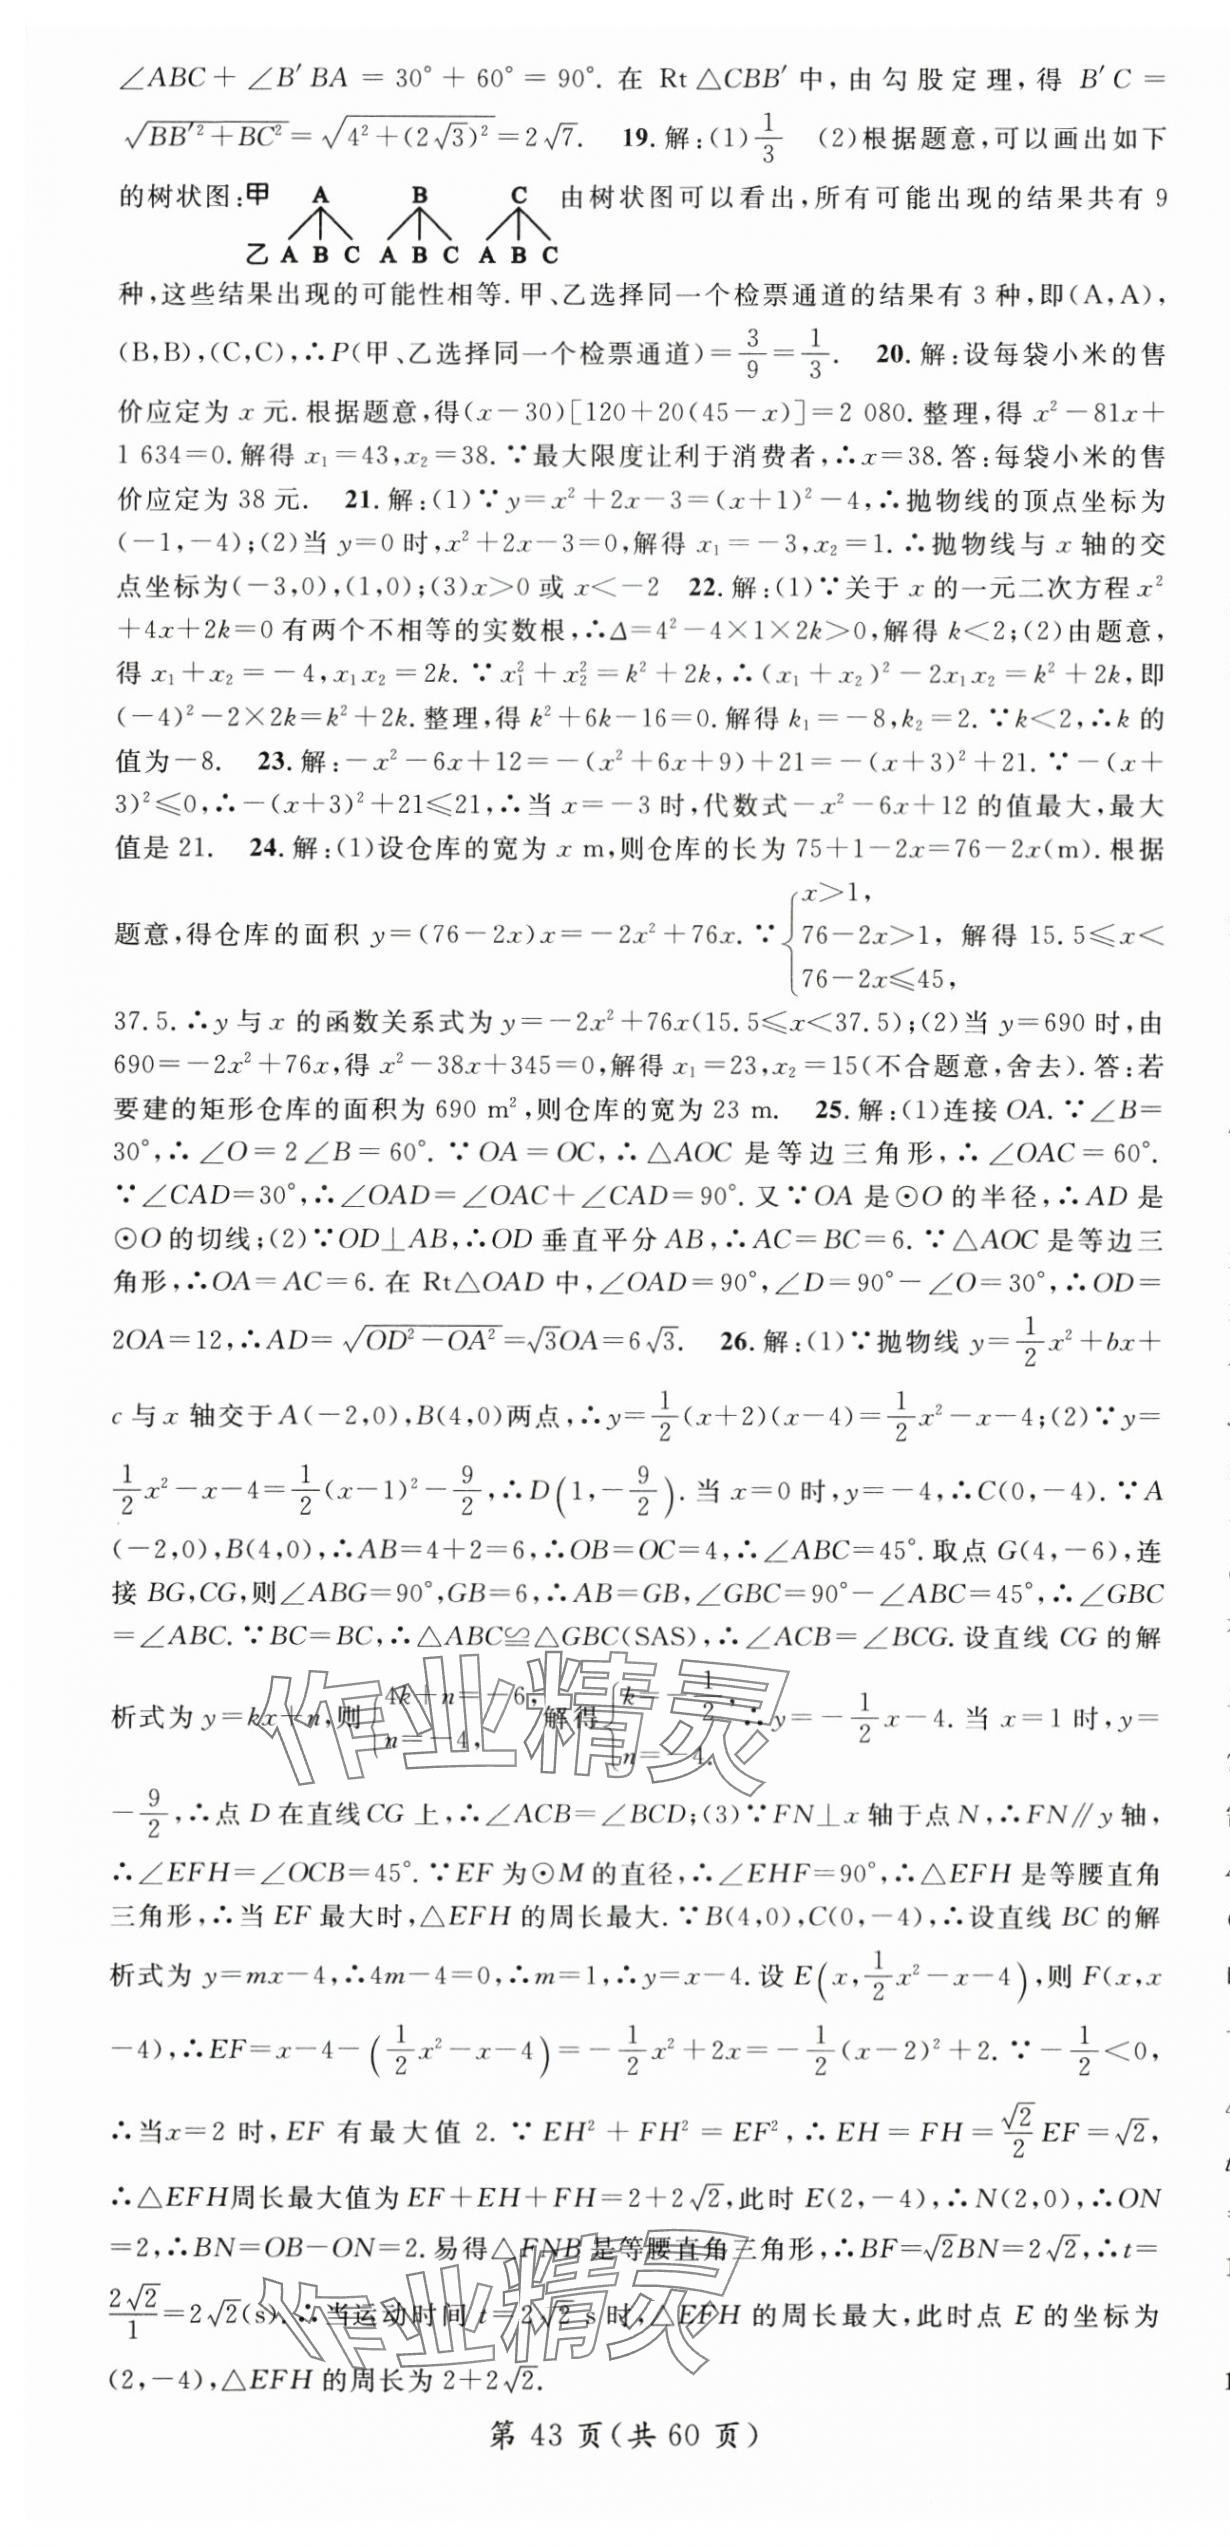 ∠ABC+∠B′BA=30°+60°=90°.在 Rt△CBB′中,由勾股定理,得 B′C=
√(BB′²+BC²)=√(4²+(2√3)²)=2√7. 19.解:(1)1/3 (2)根据题意,可以画出如下
的树状图:甲 A B C 由树状图可以看出,所有可能出现的结果共有 9
乙 A B C A B C A B C
种,这些结果出现的可能性相等.甲、乙选择同一个检票通道的结果有 3 种,即(A,A),
(B,B),(C,C),∴P(甲、乙选择同一个检票通道)=3/9=1/3. 20.解:设每袋小米的售
价应定为 x 元.根据题意,得(x-30)[120+20(45-x)]=2 080.整理,得 x²-81x+
1 634=0.解得 x₁=43,x₂=38.∵最大限度让利于消费者,∴x=38.答:每袋小米的售
价应定为 38 元. 21.解:(1)∵y=x²+2x-3=(x+1)²-4,∴抛物线的顶点坐标为
(-1,-4);(2)当 y=0 时,x²+2x-3=0,解得 x₁=-3,x₂=1.∴抛物线与 x 轴的交
点坐标为(-3,0),(1,0);(3)x>0 或 x<-2 22.解:(1)∵关于 x 的一元二次方程 x²
+4x+2k=0 有两个不相等的实数根,∴Δ=4²-4×1×2k>0,解得 k<2;(2)由题意,
得 x₁+x₂=-4,x₁x₂=2k.∵x₁²+x₂²=k²+2k,∴(x₁+x₂)²-2x₁x₂=k²+2k,即
(-4)²-2×2k=k²+2k.整理,得 k²+6k-16=0.解得 k₁=-8,k₂=2.∵k<2,∴k 的
值为-8. 23.解:-x²-6x+12=-(x²+6x+9)+21=-(x+3)²+21.∵-(x+
3)²≤0,∴-(x+3)²+21≤21,∴当 x=-3 时,代数式-x²-6x+12 的值最大,最大
值是 21. 24.解:(1)设仓库的宽为 x m,则仓库的长为 75+1-2x=76-2x(m).根据
x>1,
题意,得仓库的面积 y=(76-2x)x=-2x²+76x.∵{76-2x>1, 解得 15.5≤x<
76-2x≤45,
37.5.∴y 与 x 的函数关系式为 y=-2x²+76x(15.5≤x<37.5);(2)当 y=690 时,由
690=-2x²+76x,得 x²-38x+345=0,解得 x₁=23,x₂=15(不合题意,舍去).答:若
要建的矩形仓库的面积为 690 m²,则仓库的宽为 23 m. 25.解:(1)连接 OA.∵∠B=
30°,∴∠O=2∠B=60°.∵OA=OC,∴△AOC 是等边三角形,∴∠OAC=60°.
∵∠CAD=30°,∴∠OAD=∠OAC+∠CAD=90°.又∵OA 是⊙O 的半径,∴AD 是
⊙O 的切线;(2)∵OD⊥AB,∴OD 垂直平分 AB,∴AC=BC=6.∵△AOC 是等边三
角形,∴OA=AC=6.在 Rt△OAD 中,∠OAD=90°,∠D=90°-∠O=30°,∴OD=
2OA=12,∴AD=√(OD²-OA²)=√3OA=6√3. 26.解:(1)∵抛物线 y=1/2x²+bx+
c 与 x 轴交于 A(-2,0),B(4,0)两点,∴y=1/2(x+2)(x-4)=1/2x²-x-4;(2)∵y=
1/2x²-x-4=1/2(x-1)²-9/2,∴D(1,-9/2).当 x=0 时,y=-4,∴C(0,-4).∵A
(-2,0),B(4,0),∴AB=4+2=6,∴OB=OC=4,∴∠ABC=45°.取点 G(4,-6),连
接 BG,CG,则∠ABG=90°,GB=6,∴AB=GB,∠GBC=90°-∠ABC=45°,∴∠GBC
=∠ABC.∵BC=BC,∴△ABC≌△GBC(SAS),∴∠ACB=∠BCG.设直线 CG 的解
析式为 y=kx+n,则{4k+n=-6, n=-4, 解得{k=-1/2, n=-4. ∴y=-1/2x-4.当 x=1 时,y=
-9/2,∴点 D 在直线 CG 上,∴∠ACB=∠BCD;(3)∵FN⊥x 轴于点 N,∴FN∥y 轴,
∴∠EFH=∠OCB=45°.∵EF 为⊙M 的直径,∴∠EHF=90°,∴△EFH 是等腰直角
三角形,∴当 EF 最大时,△EFH 的周长最大.∵B(4,0),C(0,-4),∴设直线 BC 的解
析式为 y=mx-4,∴4m-4=0,∴m=1,∴y=x-4.设 E(x,1/2x²-x-4),则 F(x,x
-4),∴EF=x-4-(1/2x²-x-4)=-1/2x²+2x=-1/2(x-2)²+2.∵-1/2<0,
∴当x=2 时,EF 有最大值 2.∵EH²+FH²=EF²,∴EH=FH=√2/2EF=√2,
∴△EFH周长最大值为 EF+EH+FH=2+2√2,此时 E(2,-4),∴N(2,0),∴ON
=2,∴BN=OB-ON=2.易得△FNB 是等腰直角三角形,∴BF=√2BN=2√2,∴t=
2√2/1=2√2(s).∴当运动时间 t=2√2 s 时,△EFH 的周长最大,此时点 E 的坐标为
(2,-4),△EFH 的周长为 2+2√2.
第 43 页(共 60 页)
作业精灵
作业精灵